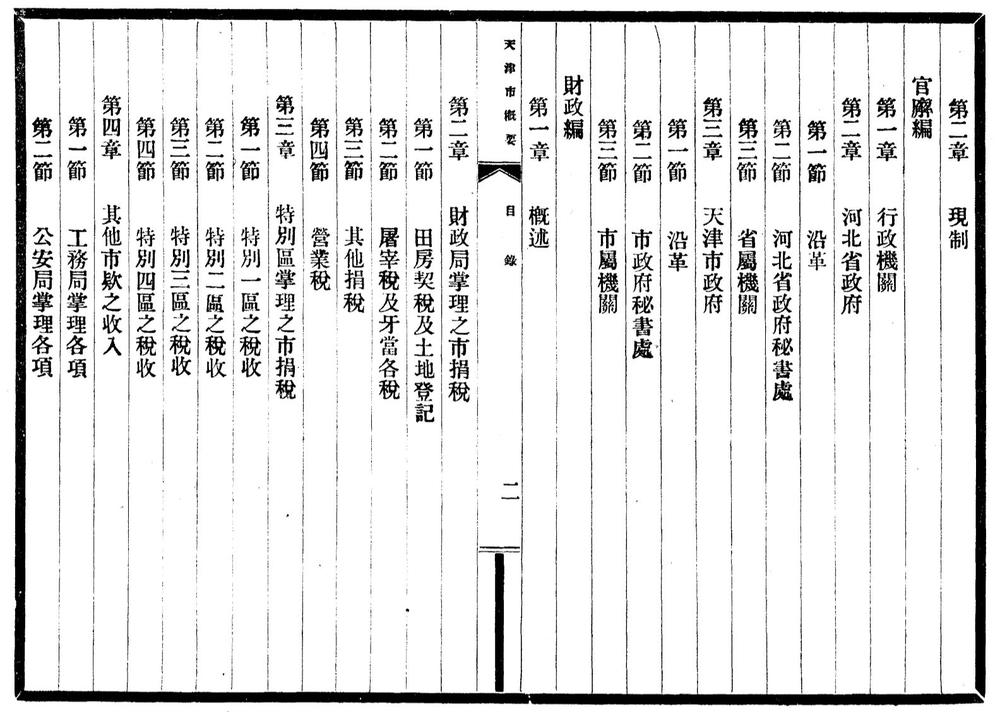 第二章 現制
官廨編
第一章 行政機關
第二章 河北省政府
第一節 沿革
第二節 河北省政府秘書處
第三節 省屬機關
第三章 天津市政府
第一節 沿革
第二節 市政府秘書處
第三節 市屬機關
財政編
第一章 概述
天津市概要 目錄 二
第二章 財政局掌理之市捐稅
第一節 田房契稅及土地登記
第二節 屠宰稅及牙當各稅
第三節 其他捐稅
第四節 營業稅
第三章 特別區掌理之市捐稅
第一節 特別一區之稅收
第二節 特別二區之稅收
第三節 特別三區之稅收
第四節 特別四區之稅收
第四章 其他市欵之收入
第一節 工務局掌理各項
第二節 公安局掌理各項